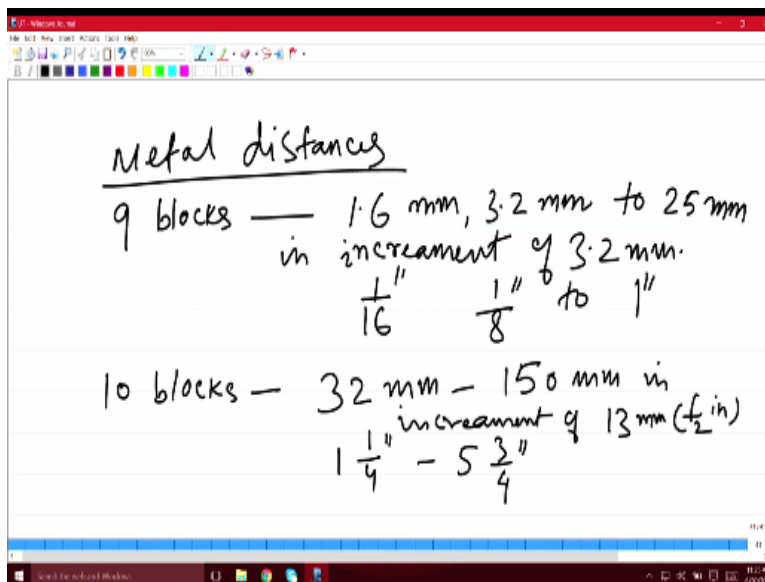 UT - Windows Journal
File Edit View Insert Actions Tools Help
Metal distances
9 blocks — 1.6 mm, 3.2 mm to 25 mm
in increament of 3.2 mm.
1/16" 1/8" to 1"
10 blocks — 32 mm - 150 mm in
increament of 13 mm (1/2 in)
1 1/4" - 5 3/4"
Search the web and Windows